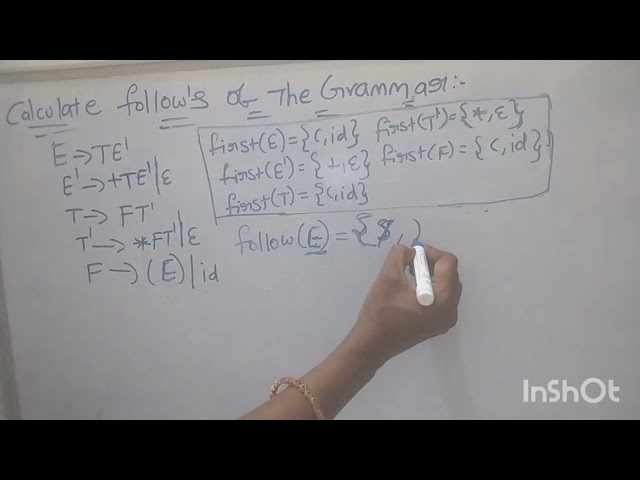 Calculate follow's of The Grammar:-
E→TE'
E'→+TE'|ε
T→FT'
T'→*FT'|ε
F→(E)|id
first(E)={(,id} first(T')={*,ε}
first(E')={+,ε} first(F)={(,id}
first(T)={(,id}
follow(E)={$,)
InShOt